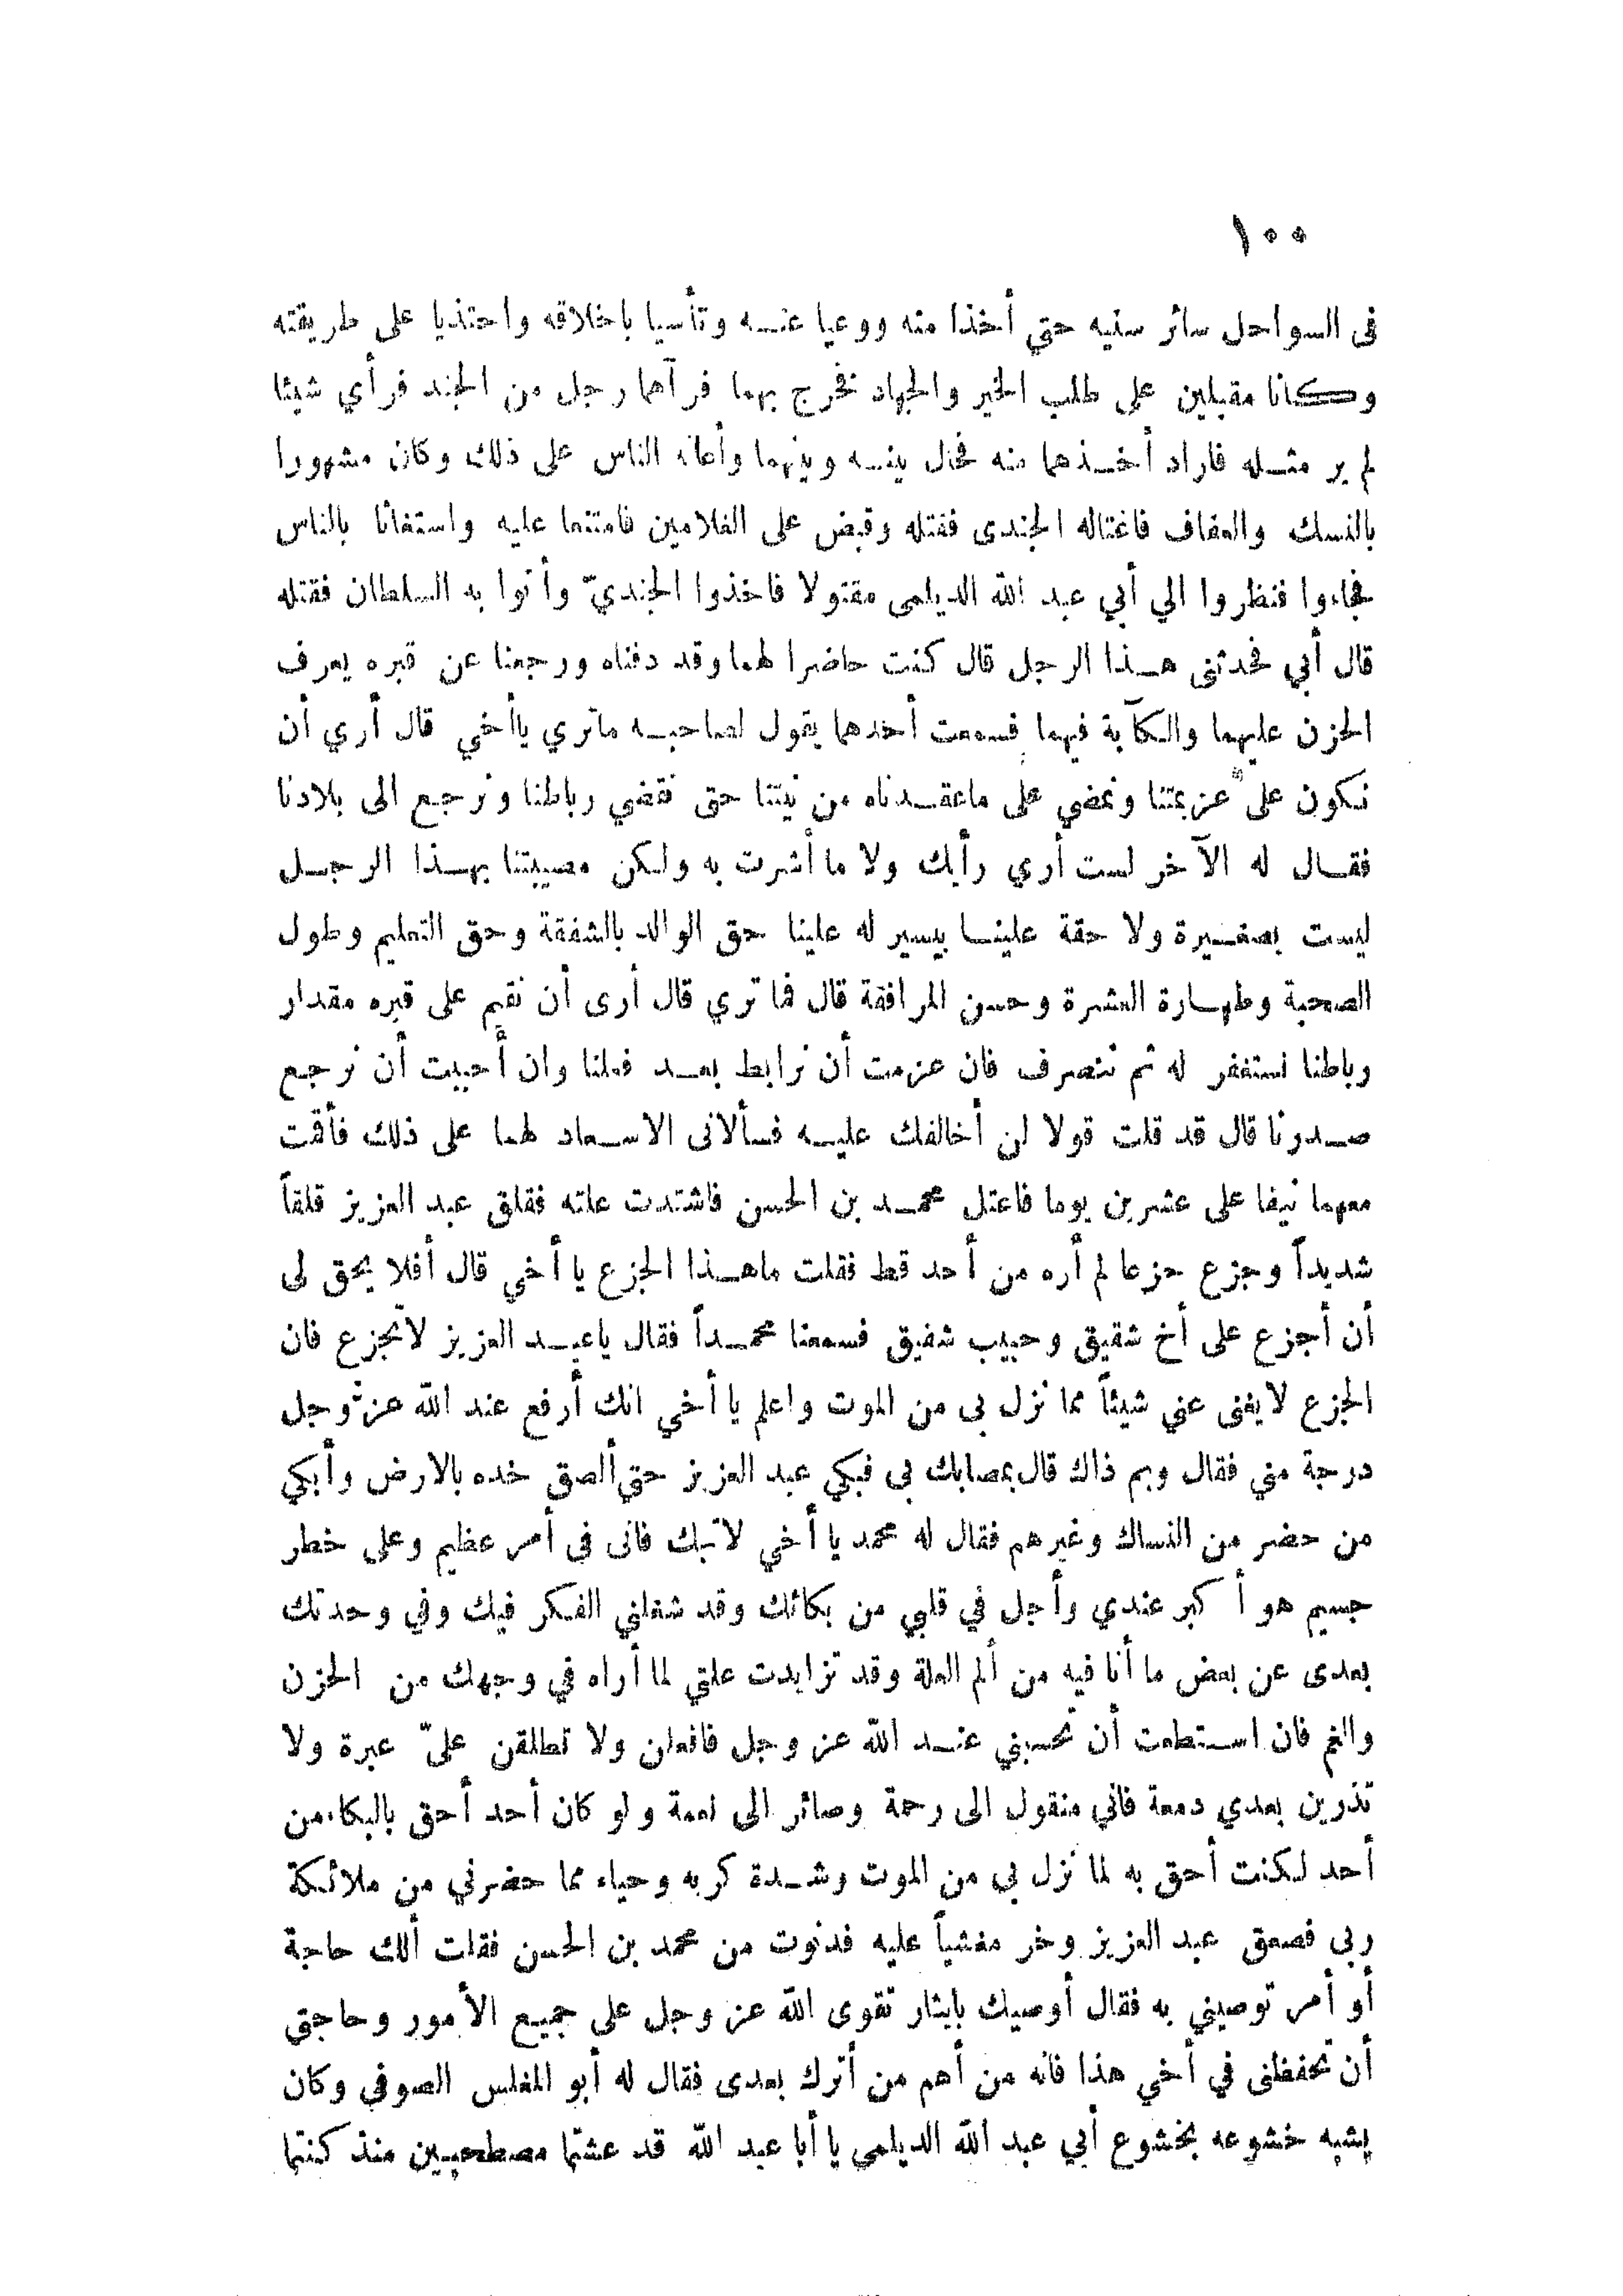 ١٠٠
فى السواحل سائر سنيه حتي أخذا منه ووعيا عنه وتأسيا باخلاقه واحتذيا على طريقته
وكانا مقبلين على طلب الخير والجهاد نخرج بهما فرآهما رجل من الجند فرأي شيئا
لم ير مثله فاراد أخذهما منه فحال بينه وبينهما وأعانه الناس على ذلك وكان مشهورا
بالنسك والعفاف فاغتاله الجندى فقتله وقبض على الغلامين فامتنعا عليه واستغاثا بالناس
فجاءوا فنظروا الي أبي عبد الله الديلمى مقتولا فاخذوا الجنديّ وأتوا به السلطان فقتله
قال أبي فحدثنى هذا الرجل قال كنت حاضرا لهما وقد دفناه ورجعنا عن قبره يعرف
الحزن عليهما والكآبة فيهما فسمعت أحدهما يقول لصاحبه ماترى ياأخي قال أري أن
نكون على عزيمتنا ونمضي على ماعقدناه من نيتنا حتى نقضي رباطنا ونرجع الى بلادنا
فقال له الآخر لست أري رأيك ولا ما أشرت به ولكن مصيبتنا بهذا الرجل
ليست بصغيرة ولا حقة علينا بيسير له علينا حق الوالد بالشفقة وحق التعليم وطول
الصحبة وطهارة العشرة وحسن المرافقة قال فما تري قال أرى أن نقيم على قبره مقدار
وباطنا نستغفر له ثم ننصرف فان عزمت أن نرابط بعد فعلنا وان أحببت أن نرجع
صدرنا قال قد قلت قولا لن أخالفك عليه فسألانى الاسعاد لهما على ذلك فأقمت
معهما نيفا على عشرين يوما فاعتل محمد بن الحسن فاشتدت علته فقلق عبد العزيز قلقاً
شديداً وجزع حزعا لم أره من أحد قط فقلت ماهذا الجزع يا أخي قال أفلا يحق لى
أن أجزع على أخ شقيق وحبيب شفيق فسمعنا محمداً فقال ياعبد العزيز لاتجزع فان
الجزع لايغنى عني شيئاً مما نزل بى من الموت واعلم يا أخي انك أرفع عند الله عز وجل
درجة مني فقال وبم ذاك قال بمصابك بى فبكي عبد العزيز حتي ألصق خده بالارض وأبكي
من حضر من النساك وغيرهم فقال له محمد يا أخي لاتبك فانى فى أمر عظيم وعلى خطر
جسيم هو أكبر عندي وأجل في قلبي من بكائك وقد شغلني الفكر فيك وفي وحدتك
بعدى عن بعض ما أنا فيه من ألم العلة وقد تزايدت علتي لما أراه في وجهك من الحزن
والغم فان استطعت أن تحسبني عند الله عز وجل فافعلن ولا تطلقن علىّ عبرة ولا
تذرين بعدي دمعة فاني منقول الى رحمة وصائر الى نعمة ولو كان أحد أحق بالبكاء من
أحد لكنت أحق به لما نزل بى من الموت وشدة كربه وحياء مما حضرني من ملائكة
ربى فصعق عبد العزيز وخر مغشياً عليه فدنوت من محمد بن الحسن فقلت ألك حاجة
أو أمر توصيني به فقال أوصيك بايثار تقوى الله عز وجل على جميع الأمور وحاجتى
أن تحفظنى في أخي هذا فانه من أهم من أترك بعدى فقال له أبو المغلس الصوفى وكان
يشبه خشوعه بخشوع أبي عبد الله الديلمى يا أبا عبد الله قد عشتما مصطحبين منذ كنتما